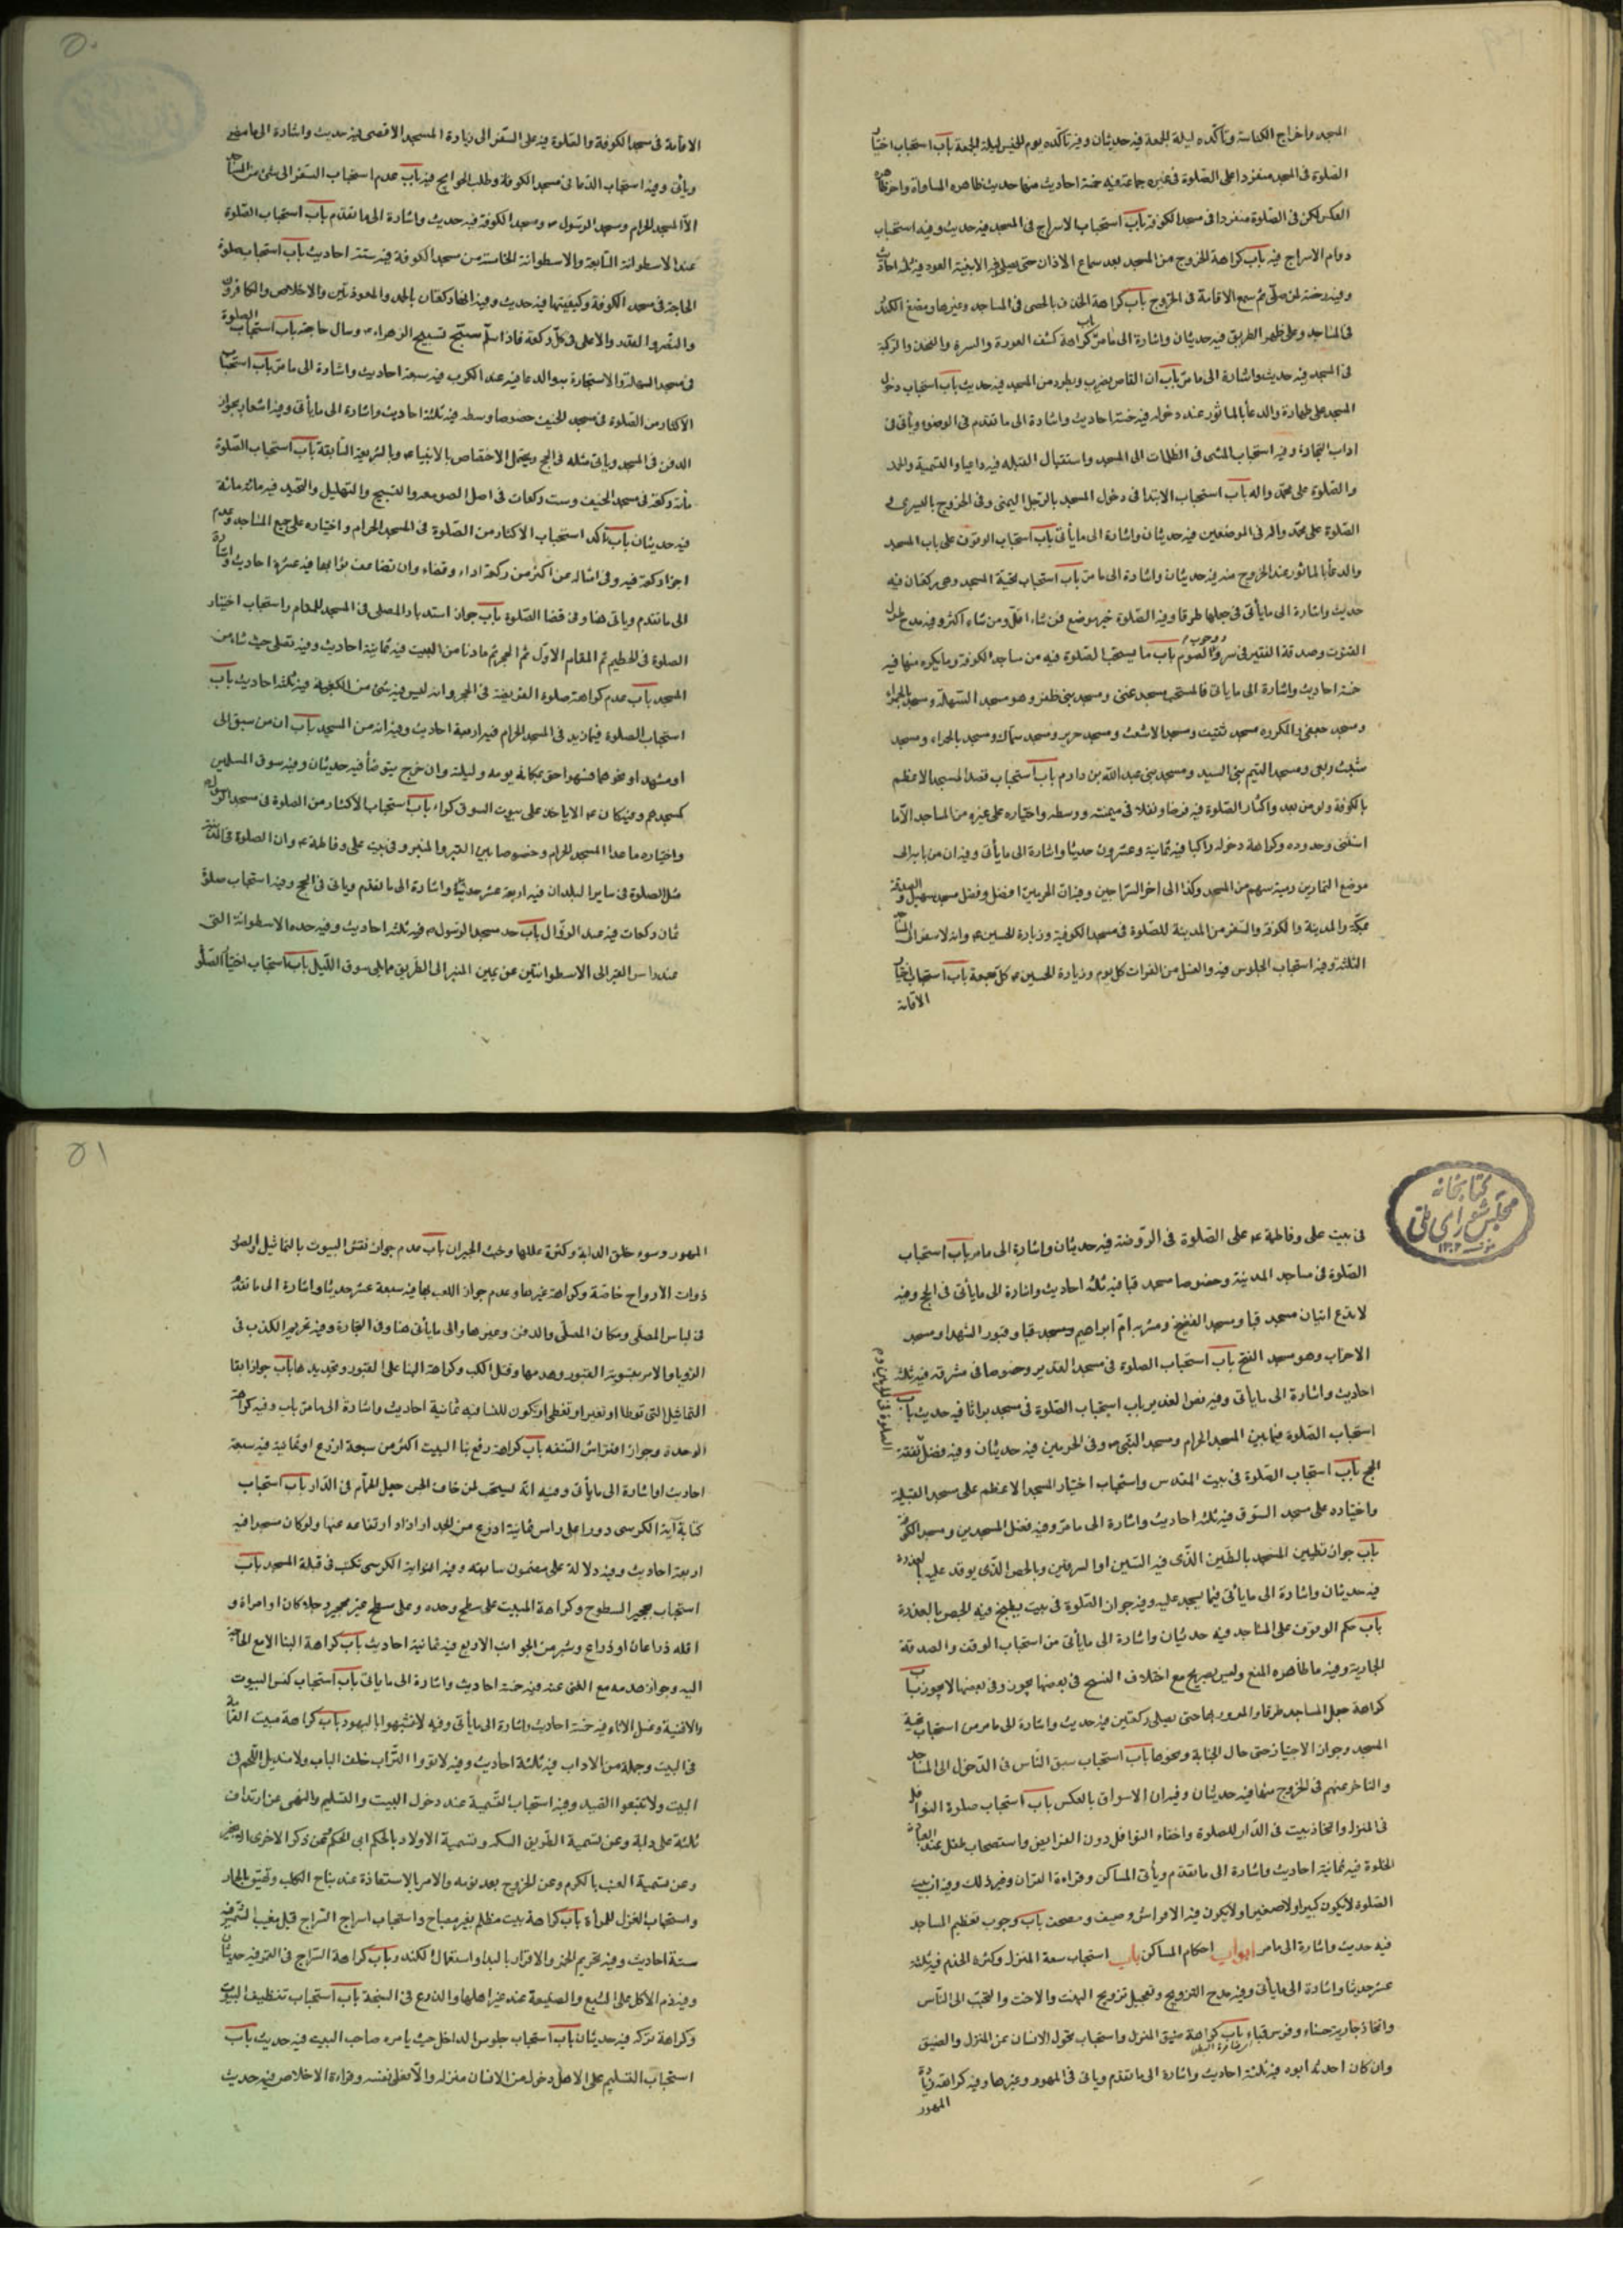 المسجد واخراج الكناسة وتأكده ليلة الجمعة فيه حديثان وفيه تأكده يوم الخميس ليلة الجمعة باب استحباب اختيار
الصلوة فى المسجد منفردا على الصلوة فى غيره جماعة فيه خمسة احاديث منها حديث ظاهره المساواة واخر ظاهره
العكس لكن فى الصلوة منفردا فى مسجد الكوفة باب استحباب الاسراج فى المسجد فيه حديث وفيه استحباب
دوام الاسراج فيه باب كراهة الخروج من المسجد بعد سماع الاذان حتى يصلى فيه الا بنية العود فيه ثلثة احاديث
وفيه رخصة لمن صلى ثم سمع الاقامة فى الخروج باب كراهة الخذف بالحصى فى المساجد وغيرها ومضغ الكندر
فى المساجد وعلى ظهر الطريق فيه حديثان واشارة الى ما مر باب كراهة كشف العورة والسرة والفخذ والركبة
فى المسجد فيه حديث واشارة الى ما مر باب ان القاص يضرب ويطرد من المسجد فيه حديث باب استحباب دخول
المسجد على طهارة والدعا بالماثور عند دخوله فيه خمسة احاديث واشارة الى ما تقدم فى الوضوء ويأتى فى
اداب التجارة وفيه استحباب المشى فى الظلمات الى المسجد واستقبال القبلة فيه داعيا والتسمية والحمد
والصلوة على محمد واله باب استحباب الابتدا فى دخول المسجد بالرجل اليمنى وفى الخروج باليسرى و
الصلوة على محمد واله فى الموضعين فيه حديثان واشارة الى ما يأتى باب استحباب الوقوف على باب المسجد
والدعا بالماثور عند الخروج منه فيه حديثان واشارة الى ما مر باب استحباب تحية المسجد وهى ركعتان فيه
حديث واشارة الى ما يأتى فى جعلها طرقا وفيه الصلوة خير موضوع فمن شاء اقل ومن شاء اكثر وفيه مدح طول
القنوت وصدقة الفقير فى سر ووجوب الصوم باب ما يستحب الصلوة فيه من مساجد الكوفة وما يكره منها فيه
خمسة احاديث واشارة الى ما ياتى فالمستحب مسجد غنى ومسجد بنى ظفر وهو مسجد السهلة ومسجد بالحمراء
ومسجد جعفى والمكروه مسجد ثقيف ومسجد الاشعث ومسجد جرير ومسجد سماك ومسجد بالحمراء ومسجد
شبث ربعى ومسجد التيم بنى السيد ومسجد بنى عبدالله بن دارم باب استحباب قصد المسجد الاعظم
بالكوفة ولو من بعد واكثار الصلوة فيه فرضا ونفلا فى ميمنته ووسطه واختياره على غيره من المساجد الا ما
استثنى وحدوده وكراهة دخوله راكبا فيه ثمانية وعشرون حديثا واشارة الى ما يأتى وفيه ان من بابه الى
موضع التمارين رمية سهم من المسجد وكذا الى اخر السراجين وفيه ان الحرمين افضل وفضل مسجد سهيل والصدقة
بمكة والمدينة والكوفة والسفر من المدينة للصلوة فى مسجد الكوفية وزيارة الحسين ع وانه لا سفر الى المساجد
الثلثة وفيه استحباب الجلوس فيه والغسل من الفرات كل يوم وزيارة الحسين ع كل جمعة باب استحباب اختيار
الاقامة
٥٠
الاقامة فى مسجد الكوفة والصلوة فيه على السفر الى زيارة المسجد الاقصى فيه حديث واشارة الى ما مضى
ويأتى وفيه استحباب الدعا فى مسجد الكوفة وطلب الحوايج فيه باب عدم استحباب السفر الى شئ من المساجد
الا المسجد الحرام ومسجد الرسول ص ومسجد الكوفة فيه حديث واشارة الى ما تقدم باب استحباب الصلوة
عند الاسطوانة السابعة والاسطوانة الخامسة من مسجد الكوفة فيه ستة احاديث باب استحباب صلوة
الحاجة فى مسجد الكوفة وكيفيتها فيه حديث وفيه انها ركعتان بالحمد والمعوذتين والاخلاص والكافرون
والنصر والقدر والاعلى فى كل ركعة فاذا سلم سبح تسبيح الزهراء ع وسال حاجته باب استحباب الصلوة
فى مسجد السهلة والاستجارة به والدعا فيه عند الكرب فيه سبعة احاديث واشارة الى ما مر باب استحباب
الاكثار من الصلوة فى مسجد الخيف خصوصا وسطه فيه ثلثة احاديث واشارة الى ما يأتى وفيه اشعار بجواز
الدفن فى المسجد وياتى مثله فى الحج ويحتمل الاختصاص بالانبياء ع وبالشريعة السابقة باب استحباب الصلوة
مأة ركعة فى مسجد الخيف وست ركعات فى اصل الصومعة والتسبيح والتهليل والتحميد فيه مائة مائة
فيه حديثان باب تاكد استحباب الاكثار من الصلوة فى المسجد الحرام واختياره على جميع المساجد وعدم
اجزا ركعة فيه وفى امثاله عن اكثر من ركعة اداء وقضاء وان تضاعف ثوابها فيه عشرة احاديث واشارة
الى ما تقدم وياتى هنا وفى قضا الصلوة باب جواز استدبار المصلى فى المسجد للمقام واستحباب اختيار
الصلوة فى الحطيم ثم المقام الاول ثم الحجر ثم ما دنا من البيت فيه ثمانية احاديث وفيه تصلى حيث شاء من
المسجد باب عدم كراهة صلوة الفريضة فى الحجر وانه ليس فيه شئ من الكعبة فيه ثلثة احاديث باب
استحباب الصلوة فيما زيد فى المسجد الحرام فيه اربعة احاديث وفيه انه من المسجد باب ان من سبق الى
او مشهد او نحوهما فهو احق بمكانه يومه وليلته وان خرج يتوضأ فيه حديثان وفيه سوق المسلمين
كمسجدهم وفيه كان ع لا ياخذ على بيوت السوق كراء باب استحباب الاكثار من الصلوة فى مسجد الرسول ص
واختياره ما عدا المسجد الحرام وخصوصا بين القبر والمنبر وفى بيت على وفاطمة ع وان الصلوة فى المدينة
مثل الصلوة فى ساير البلدان فيه اربعة عشر حديثا واشارة الى ما تقدم وياتى فى الحج وفيه استحباب صلوة
ثمان ركعات فيه عند الزوال باب حد مسجد الرسول ص فيه ثلثة احاديث وفيه حده الاسطوانة التى
عند راس القبر الى الاسطوانتين عن يمين المنبر الى الطريق مما يلى سوق الليل باب استحباب اختيار الصلوة
كتابخانه
مجلس شوراى ملى
فى بيت على وفاطمة ع على الصلوة فى الروضة فيه حديثان واشارة الى ما مر باب استحباب
الصلوة فى مساجد المدينة وخصوصا مسجد قبا فيه ثلثة احاديث واشارة الى ما يأتى فى الحج وفيه
لا تدع اتيان مسجد قبا ومسجد الفضيخ ومشربة ام ابراهيم ومسجد قبا وقبور الشهدا ومسجد
الاحزاب وهو مسجد الفتح باب استحباب الصلوة فى مسجد الغدير وخصوصا فى مشرقه فيه ثلثة
احاديث واشارة الى ما يأتى وفيه نص الغدير باب استحباب الصلوة فى مسجد براثا فيه حديث باب
استحباب الصلوة فيما بين المسجد الحرام ومسجد النبى ص وفى الحرمين فيه حديثان وفيه فضل نفقة
الحج باب استحباب الصلوة فى بيت المقدس واستحباب اختيار المسجد الاعظم على مسجد القبيلة
واختياره على مسجد السوق فيه ثلثة احاديث واشارة الى ما مر وفيه فضل المسجدين ومسجد الكوفة
باب جواز تطيين المسجد بالطين الذى فيه التبن او السرقين وبالجص الذى يوقد عليه بالعذرة
فيه حديثان واشارة الى ما يأتى فيما يسجد عليه وفيه جواز الصلوة فى بيت يطبخ فيه الجص بالعذرة
باب حكم الوقوف على المساجد فيه حديثان واشارة الى ما يأتى من استحباب الوقف والصدقة
الجارية وفيه ما ظاهره المنع وليس بصريح مع اختلاف النسخ فى بعضها يجوز وفى بعضها لا يجوز باب
كراهة جعل المساجد طرقا والمرور بها حتى يصلى ركعتين فيه حديث واشارة الى ما مر من استحباب تحية
المسجد وجواز الاجتياز حتى حال الجنابة ونحوها باب استحباب سبق الناس فى الدخول الى المساجد
والتاخر عنهم فى الخروج منها فيه حديثان وفيه ان الاسواق بالعكس باب استحباب صلوة النوافل
فى المنزل واتخاذ بيت فى الدار للصلوة واخفاء النوافل دون الفرايض واستصحاب طفل عند
الخلوة فيه ثمانية احاديث واشارة الى ما تقدم ويأتى المساكن وقراءة القران وغير ذلك وفيه ان بيت
الصلوة لا يكون كبيرا ولا صغيرا ولا يكون فيه الا فراش وسيف ومصحف باب وجوب تعظيم المساجد
فيه حديث واشارة الى ما مر ابواب احكام المساكن باب استحباب سعة المنزل وكثرة الخدم فيه ثلثة
عشر حديثا واشارة الى ما يأتى وفيه مدح التزويج وتعجيل تزويج البنت والاخت والتحبب الى الناس
واتخاذ جارية حسناء وفرس قباء باب كراهة ضيق المنزل واستحباب تحول الانسان عن المنزل والضيق
وان كان احدثه ابوه فيه ثلثة احاديث واشارة الى ما تقدم وياتى فى المهور وغيرها وفيه كراهة زيادة
المهور
٥١
المهور وسوء خلق الدابة وكثرة عللها وخبث الجيران باب عدم جواز نقش البيوت بالتماثيل والصور
ذوات الارواح خاصة وكراهة غيرها وعدم جواز اللعب بها فيه سبعة عشر حديثا واشارة الى ما تقدم
فى لباس المصلى ومكان المصلى والدفن وغيرها والى ما يأتى هنا وفى التجارة وفيه تحريم الكذب فى
الرؤيا والامر بتسوية القبور وهدمها وقتل الكلب وكراهة البنا على القبور وتجديدها باب جواز ابقا
التماثيل التى توطا او تغير او تغطى او تكون للنسا فيه ثمانية احاديث واشارة الى ما مر باب وفيه كراهة
الوحدة وجواز افتراش التنفه باب كراهة رفع بنا البيت اكثر من سبعة اذرع او ثمانية فيه سبعة
احاديث او اشارة الى ما يأتى وفيه انه يستحب لمن خاف الجن جعل الحمام فى الدار باب استحباب
كتابة آية الكرسى دورا على راس ثمانية اذرع من الجدار اذا زاد ارتفاعه عنها ولو كان مسجدا فيه
اربعة احاديث وفيه دلالة على مضمون سابقه وفيه ان اية الكرسى تكتب فى قبلة المسجد باب
استحباب تحجير السطوح وكراهة المبيت على سطح وحده وعلى سطح غير محجر رجلا كان او امراة و
اقله ذراعان او ذراع وشبر من الجوانب الاربع فيه ثمانية احاديث باب كراهة البنا الا مع الحاجة
اليه وجواز هدمه مع الغنى عنه فيه خمسة احاديث واشارة الى ما يأتى باب استحباب كنس البيوت
والافنية وغسل الاناء فيه خمسة احاديث واشارة الى ما يأتى وفيه لا تشبهوا باليهود باب كراهة مبيت القمامة
فى البيت وجملة من الاداب فيه ثلثة احاديث وفيه لا تؤوا التراب خلف الباب ولا منديل اللحم فى
البيت ولا تتبعوا الصيد وفيه استحباب التسمية عند دخول البيت والتسليم والنهى عن ارتداف
ثلثة على دابة وعن تسمية الطريق السكة وتسمية الاولاد بالحكم ابى الحكم
وعن تسمية العنب بالكرم وعن الخروج بعد نومه والامر بالاستعاذة عند نباح الكلب ونهيق الحمار
واستحباب الغزل للمرأة باب كراهة بيت مظلم بغير مصباح واستحباب اسراج السراج قبل مغيب الشمس فيه
ستة احاديث وفيه تحريم الخمر والاقرار بالبدا واستعمال الكندر وباب كراهة السراج فى القمر فيه حديثان
وفيه ذم الاكل على الشبع والصنيعة عند غير اهلها والزرع فى السبخة باب استحباب تنظيف البيوت
وكراهة تركه فيه حديثان باب استحباب جلوس الداخل حيث يامره صاحب البيت فيه حديث باب
استحباب التسليم على الاهل دخوله من الانسان منزله والا فعلى نفسه وقراءة الاخلاص فيه حديث